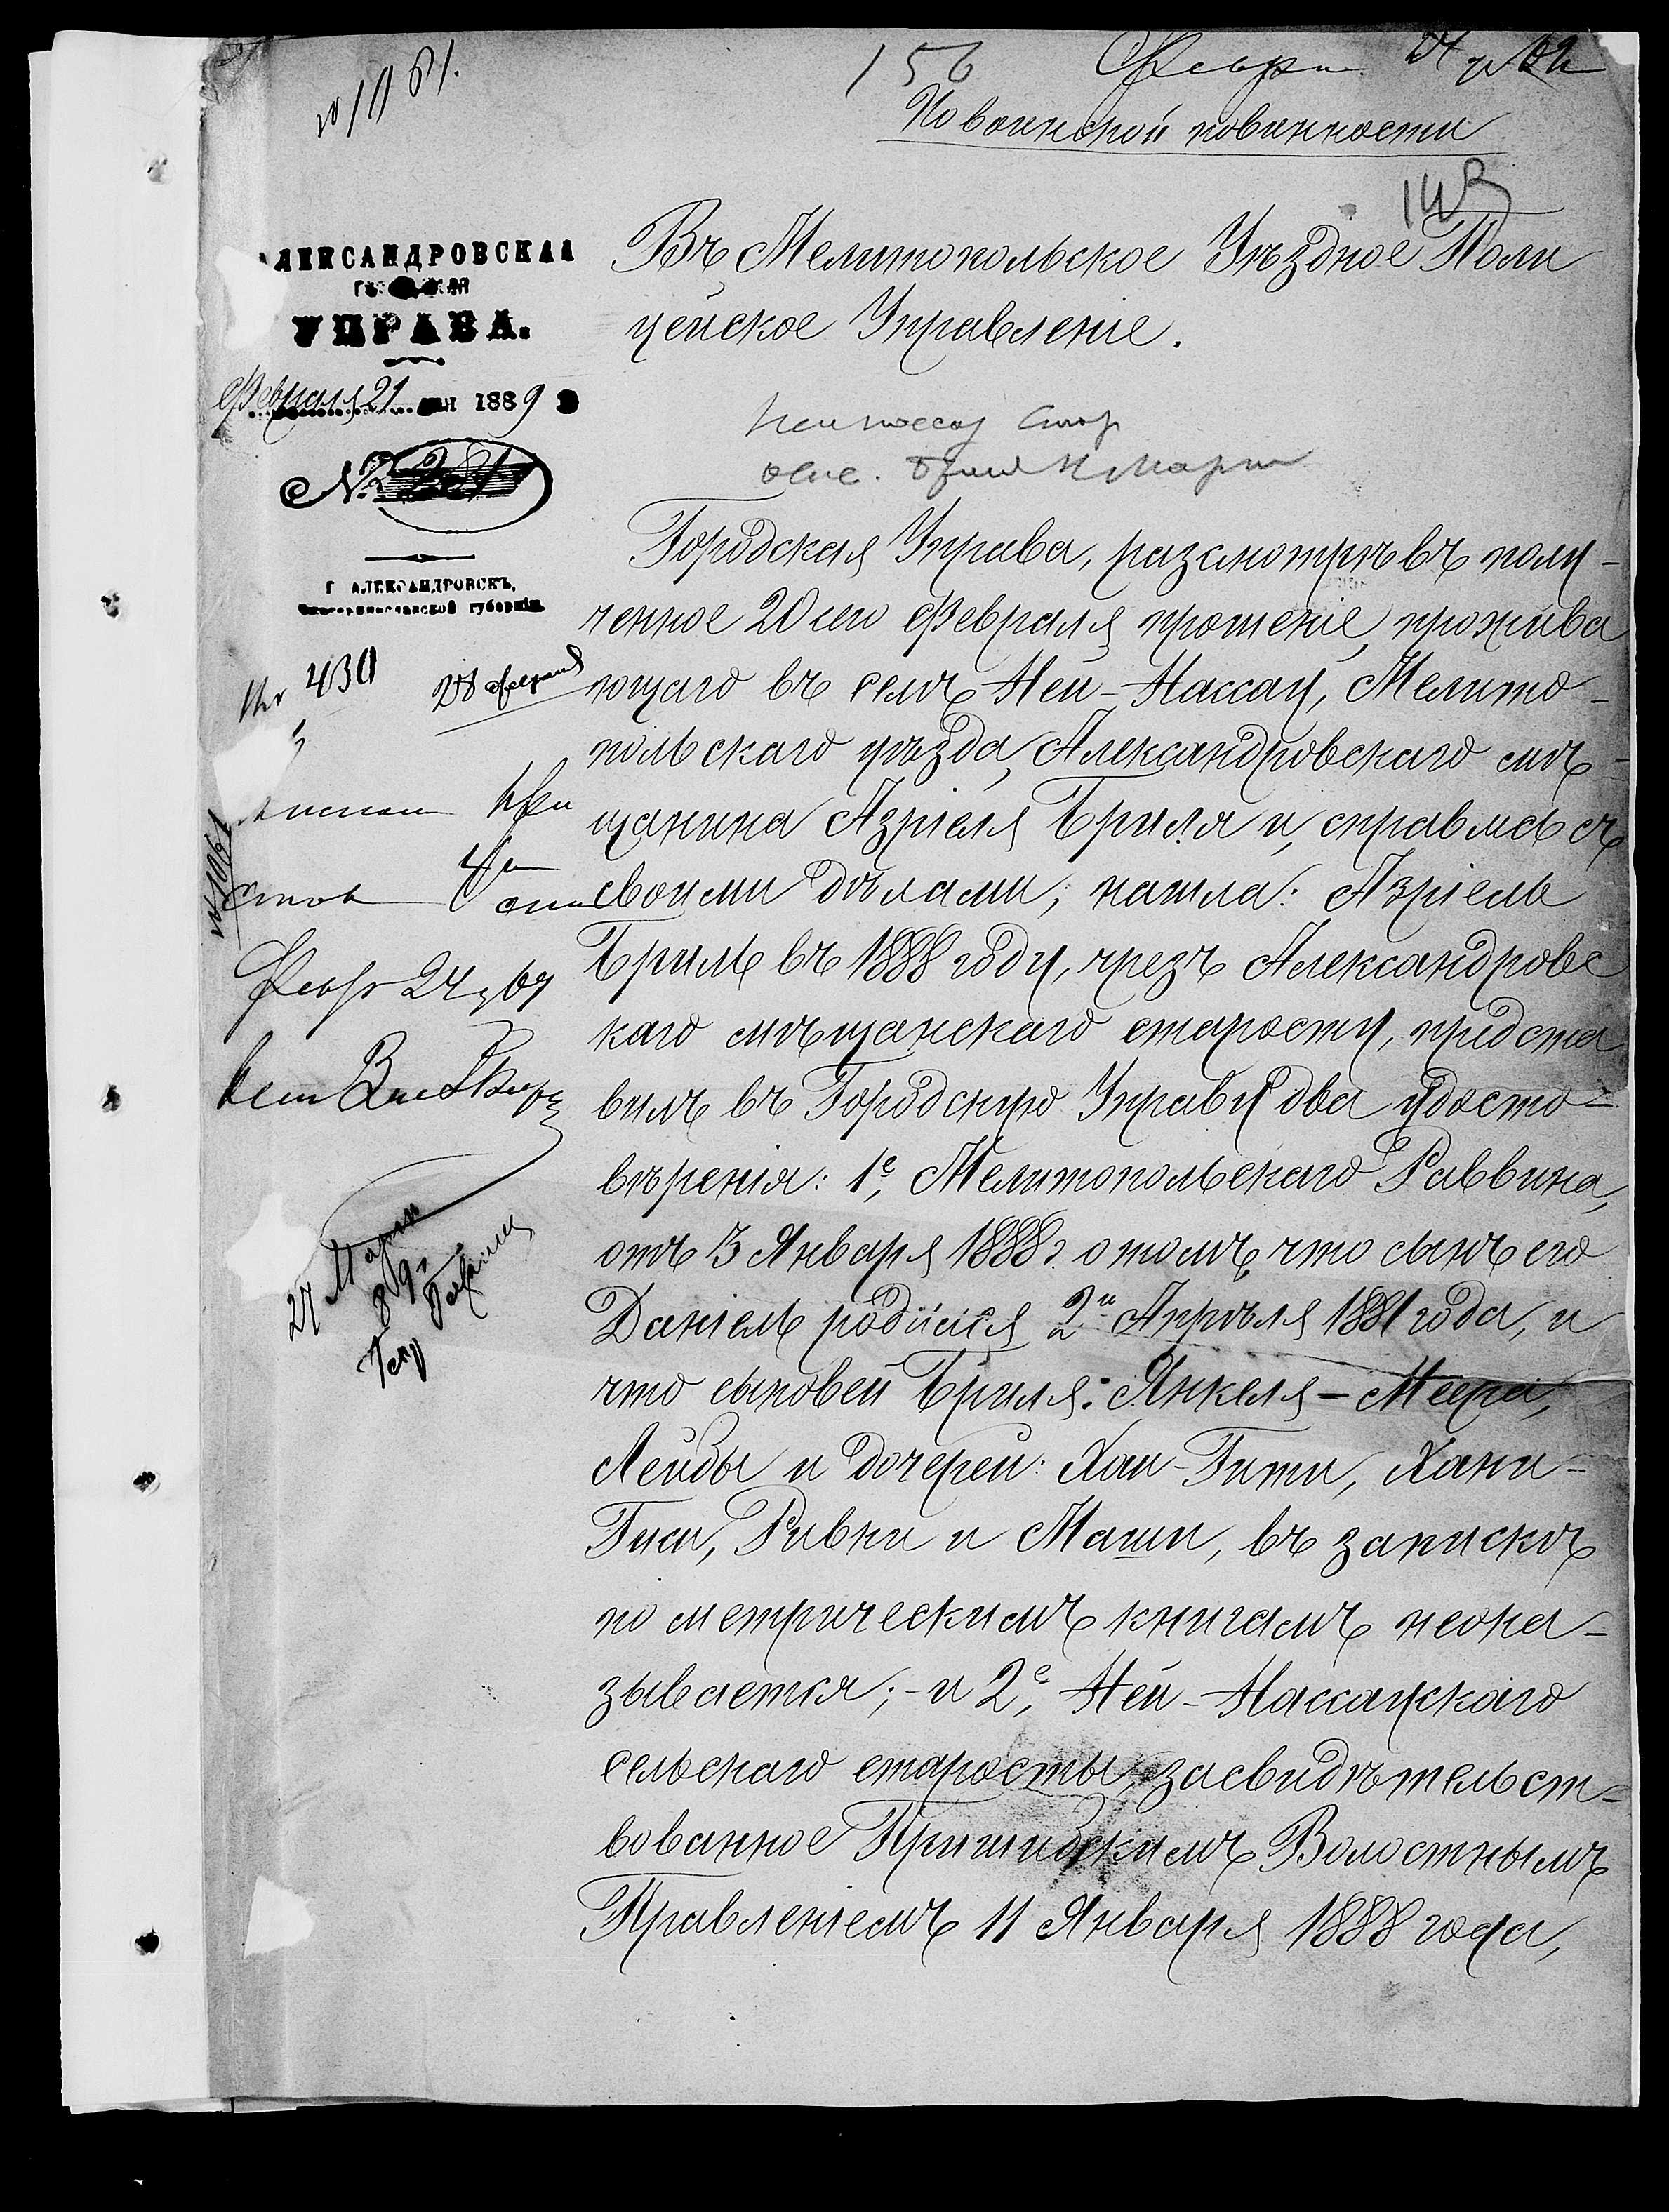 156
По воинской повинности
АЛЕКСАНДРОВСКАЯ
ГОРОДСКАЯ
УПРАВА.
Февраля 21 дня 1889
№
Г. АЛЕКСАНДРОВСКЪ,
Екатеринославской губерніи.
430
Въ Мелитопольское Уѣздное Поли
цейское Управленіе.
Городская Управа, разсмотрѣвъ полу-
ченное 20 сего Февраля прошеніе, прожива
ющаго въ селѣ Ней-Нассау, Мелито-
польскаго уѣзда, Александровскаго мѣ-
щанина Азріеля Бриля и, справясь съ
своими дѣлами, нашла: Азріель
Бриль въ 1888 году, чрезъ Александровс
каго мѣщанскаго старосту, предста
вилъ въ Городскую Управу два удосто-
вѣренія: 1е, Мелитопольскаго Раввина,
отъ 3 Января 1888 г. о томъ, что сынъ его
Даніель родился 2го Апрѣля 1881 года, и
что сыновей Бриля: Янкеля-Меера,
Лейбы и дочерей: Хаи-Гити, Хани-
Гиси, Ривки и Маши, въ запискѣ
по метрическимъ книгамъ неока-
зывается; - и 2е, Ней-Нассаускаго
сельскаго старосты, засвидѣтельст-
вованное Пришибскимъ Волостнымъ
Правленіемъ 11 Января 1888 года,